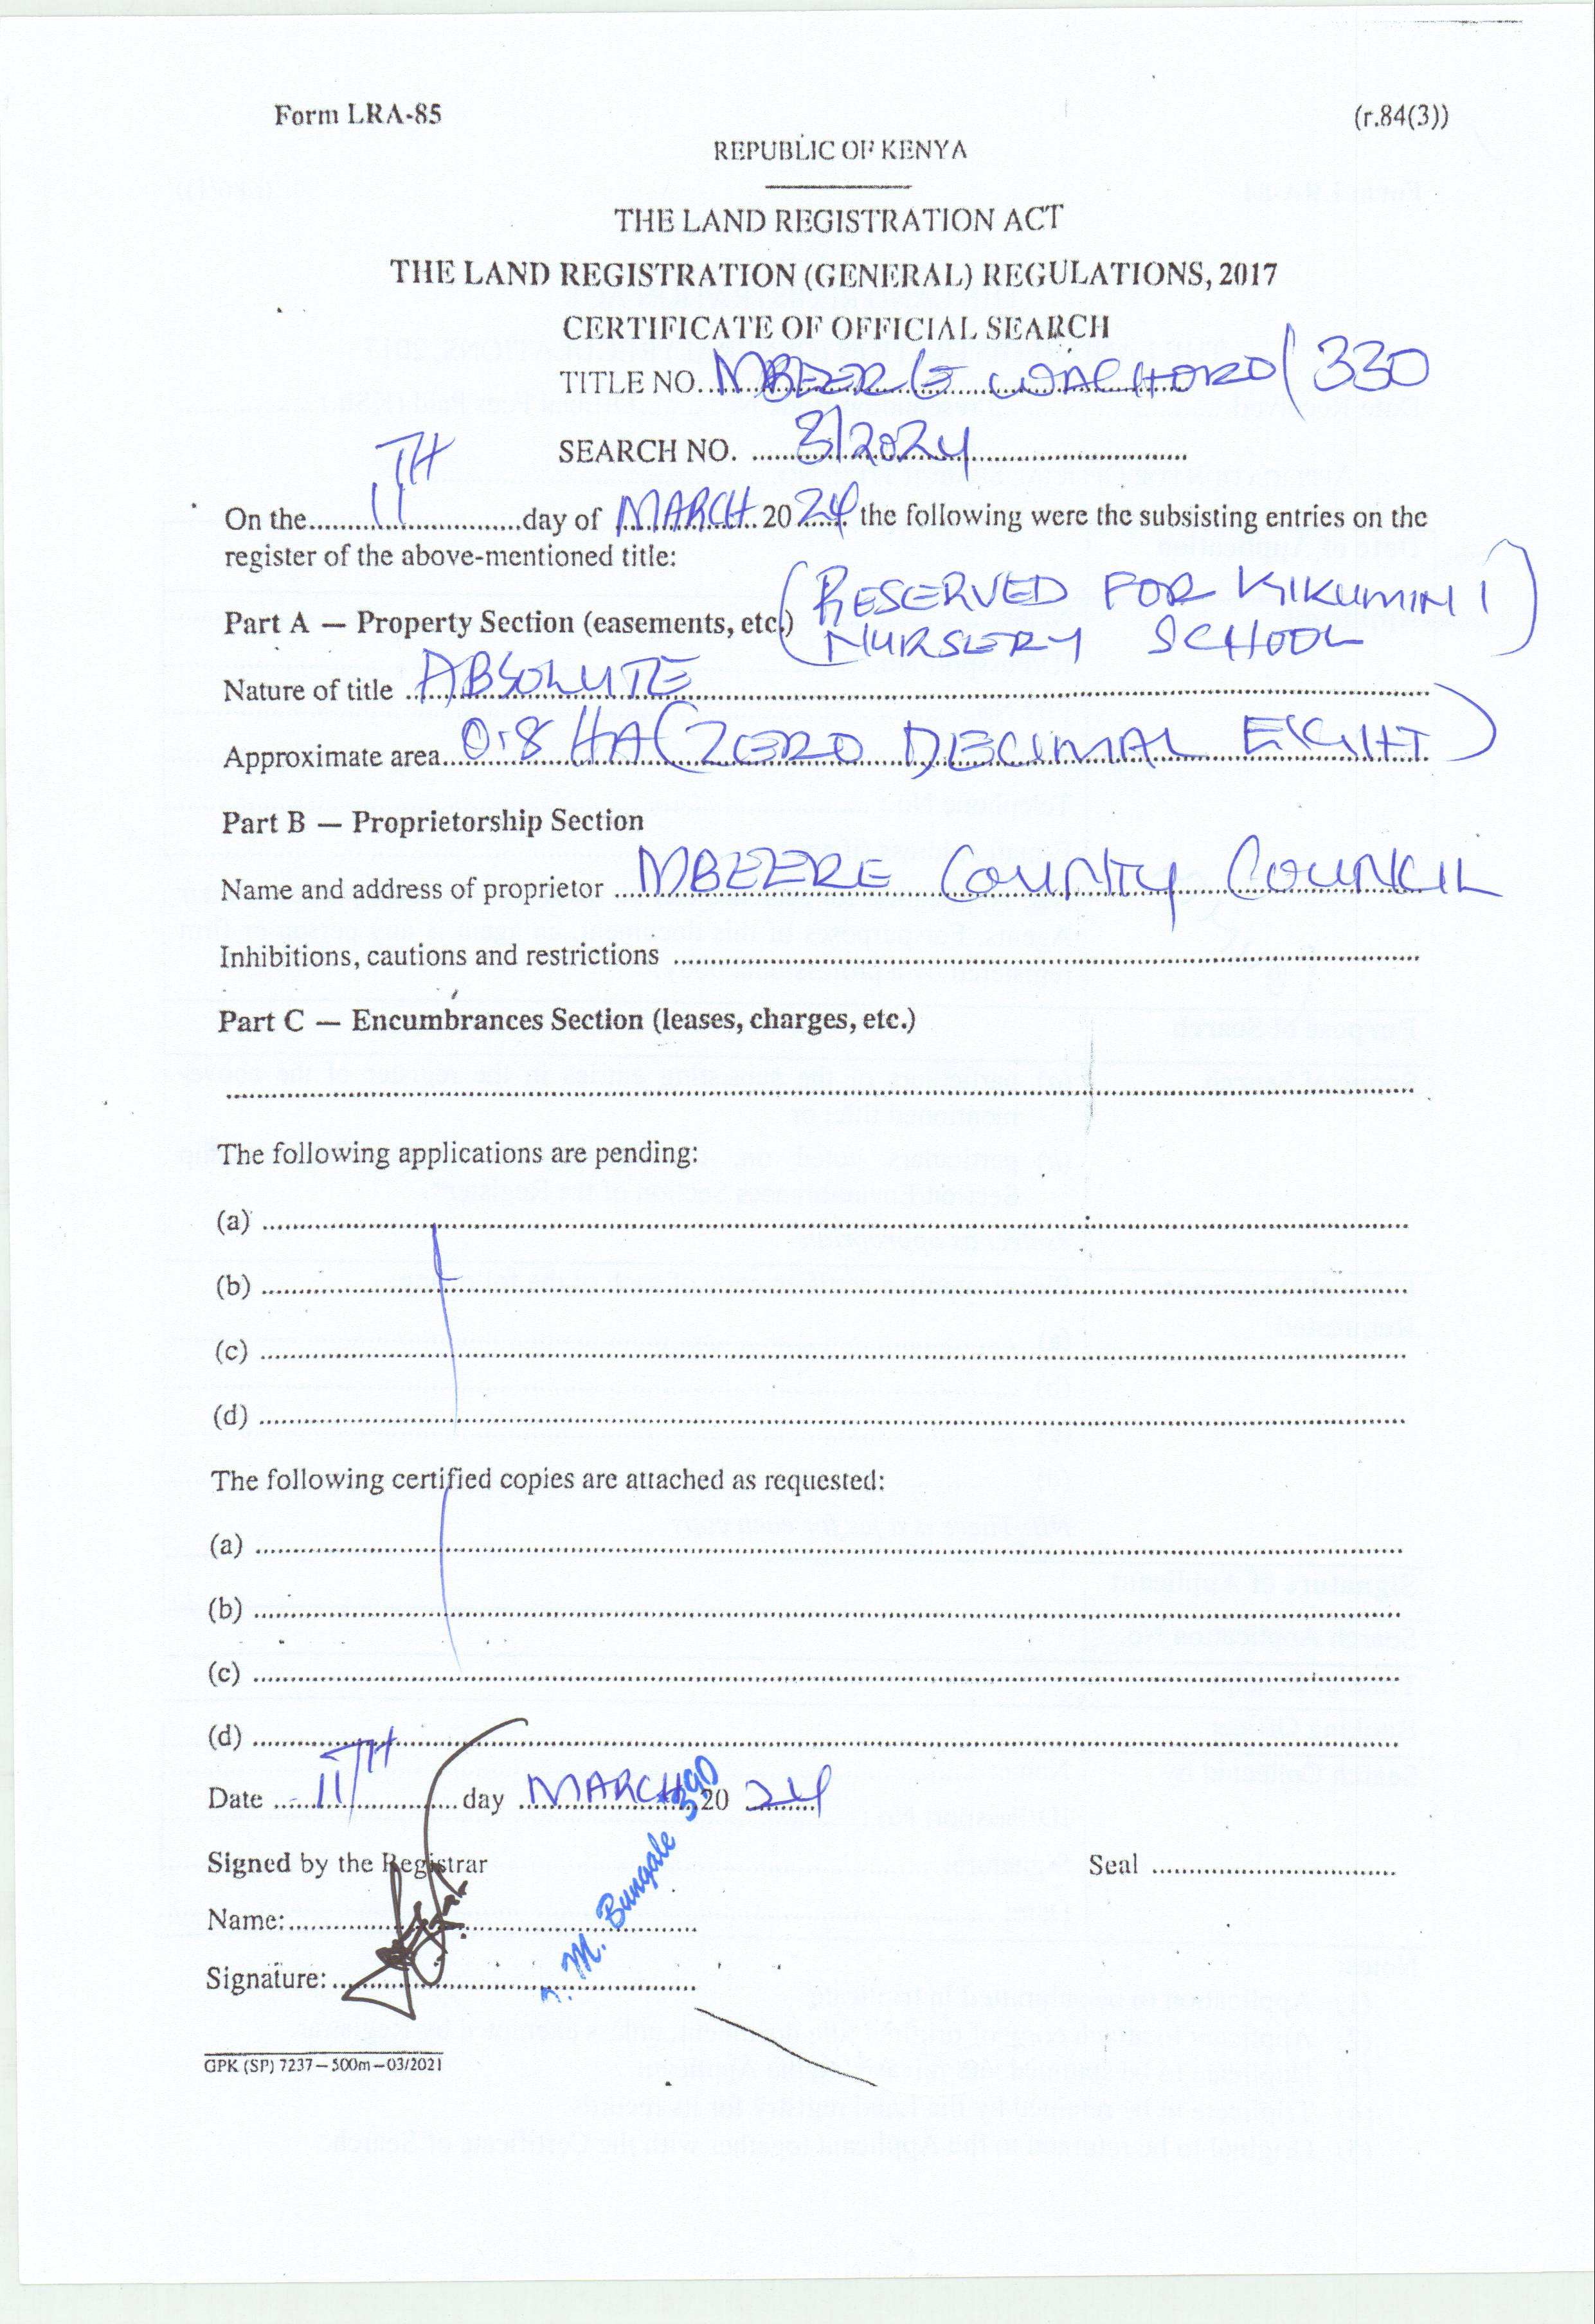 Form LRA-85 (r.84(3))
REPUBLIC OF KENYA
THE LAND REGISTRATION ACT
THE LAND REGISTRATION (GENERAL) REGULATIONS, 2017
CERTIFICATE OF OFFICIAL SEARCH
TITLE NO. MBEERE WACHORO/330
SEARCH NO. 3/2024
On the 11TH day of MARCH 2024 the following were the subsisting entries on the
register of the above-mentioned title:
Part A — Property Section (easements, etc.) (RESERVED FOR KIKUMINI
NURSERY SCHOOL)
Nature of title ABSOLUTE
Approximate area 0.8 HA (ZERO DECIMAL EIGHT)
Part B — Proprietorship Section
Name and address of proprietor MBEERE COUNTY COUNCIL
Inhibitions, cautions and restrictions
Part C — Encumbrances Section (leases, charges, etc.)
The following applications are pending:
(a)
(b)
(c)
(d)
The following certified copies are attached as requested:
(a)
(b)
(c)
(d)
Date 11TH day MARCH 2024
Signed by the Registrar Seal
Name:
M. Bungale 390
Signature:
GPK (SP) 7237—500m—03/2021